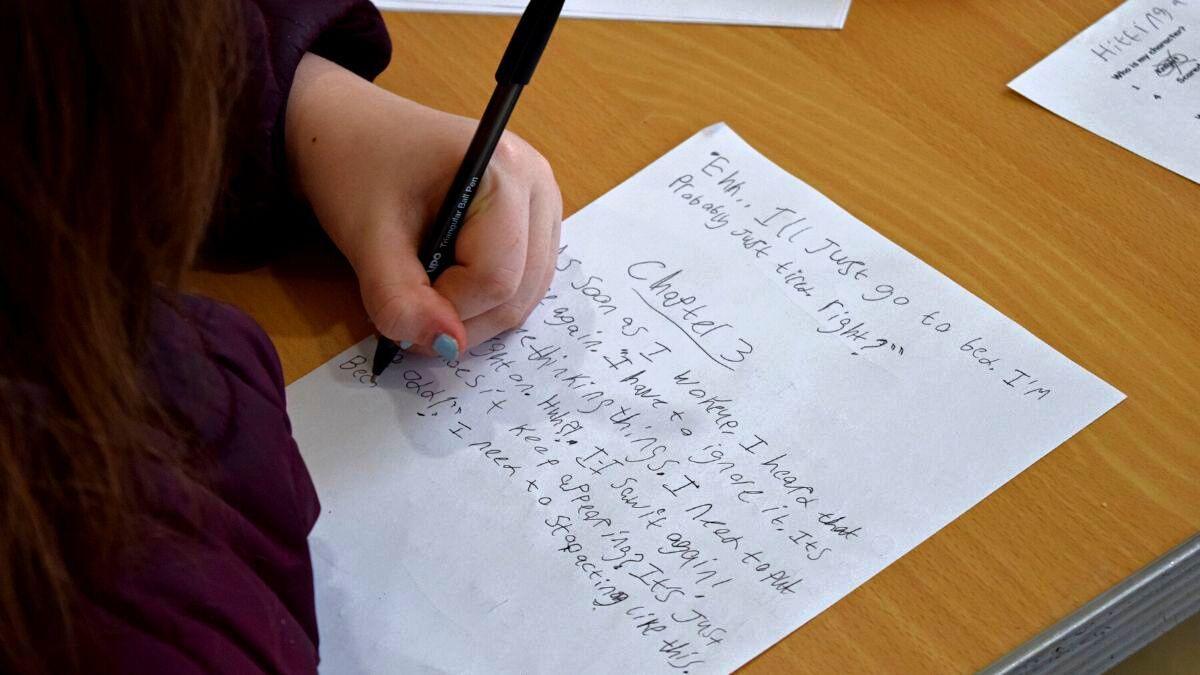 "Ehh.. I'll Just go to bed. I'm
Probably Just tired. right?"
Chapter 3
As soon as I wokeup, I heard that
again. "I have to ignore it. Its
me thinking things. I need to put
light on. Huh?! I I saw it again!
does it keep appearing? Its Just
odd!" I need to stop acting like this.
Bec
Triangular Ball Pen
Hitting
Who is my character?